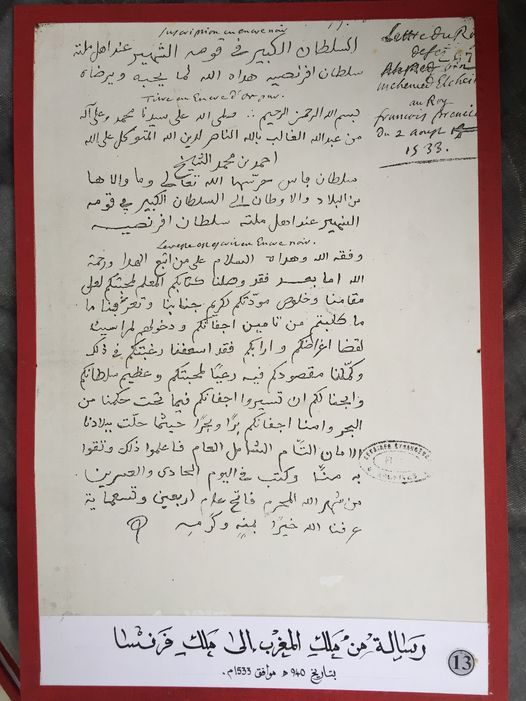 Inscription en encre noir
السلطان الكبير في قومه الشهير عند اهل ملته
سلطان افرنصيه هداه الله لما يحبه ويرضاه
Titre en Encre d'or pur.
بسم الله الرحمن الرحيم صلى الله على سيدنا محمد وعلى آله
من عبد الله الغالب بالله الناصر لدين الله المتوكل على الله
احمد بن محمد الشيخ
سلطان فاس حرسها الله تعالى وما والاها
من البلاد والاوطان الى السلطان الكبير في قومه
الشهير عند اهل ملته سلطان افرنصيه
en Encre noir.
وفقه الله وهداه السلام على من اتبع الهدا ورحمة
الله اما بعد فقد وصلنا كتابكم المعلم لمحبتكم لعلي
مقامنا وخلوص مودتكم لكريم جنابنا وتعرفنا ما
طلبتم من تامين اجفانكم ودخولهم لمراسينا
لقضا اغراضكم وارابكم فقد اسعفنا رغبتكم في ذلك
وكملنا مقصودكم فيه رعيا لمحبتكم وعظيم سلطانكم
وابحنا لكم ان تسيروا اجفانكم فيما تحت حكمنا من
البحر وامنا اجفانكم برا وبحرا حيثما حلت ببلادنا
الامان التام الشامل العام فاعلموا ذلك وثقوا
به منا وكتب في اليوم الحادي والعشرين
من شهر الله المحرم فاتح عام اربعين وتسعماية
عرفنا الله خيرا بمنه وكرمه
Lettre du Roy
de fez
Ahmed ben
mohemed Elcheik
au Roy
francois premier
du 2 aoust
1533.
رسالة من ملك المغرب إلى ملك فرنسا
بتاريخ 940 ه موافق 1533م.
13